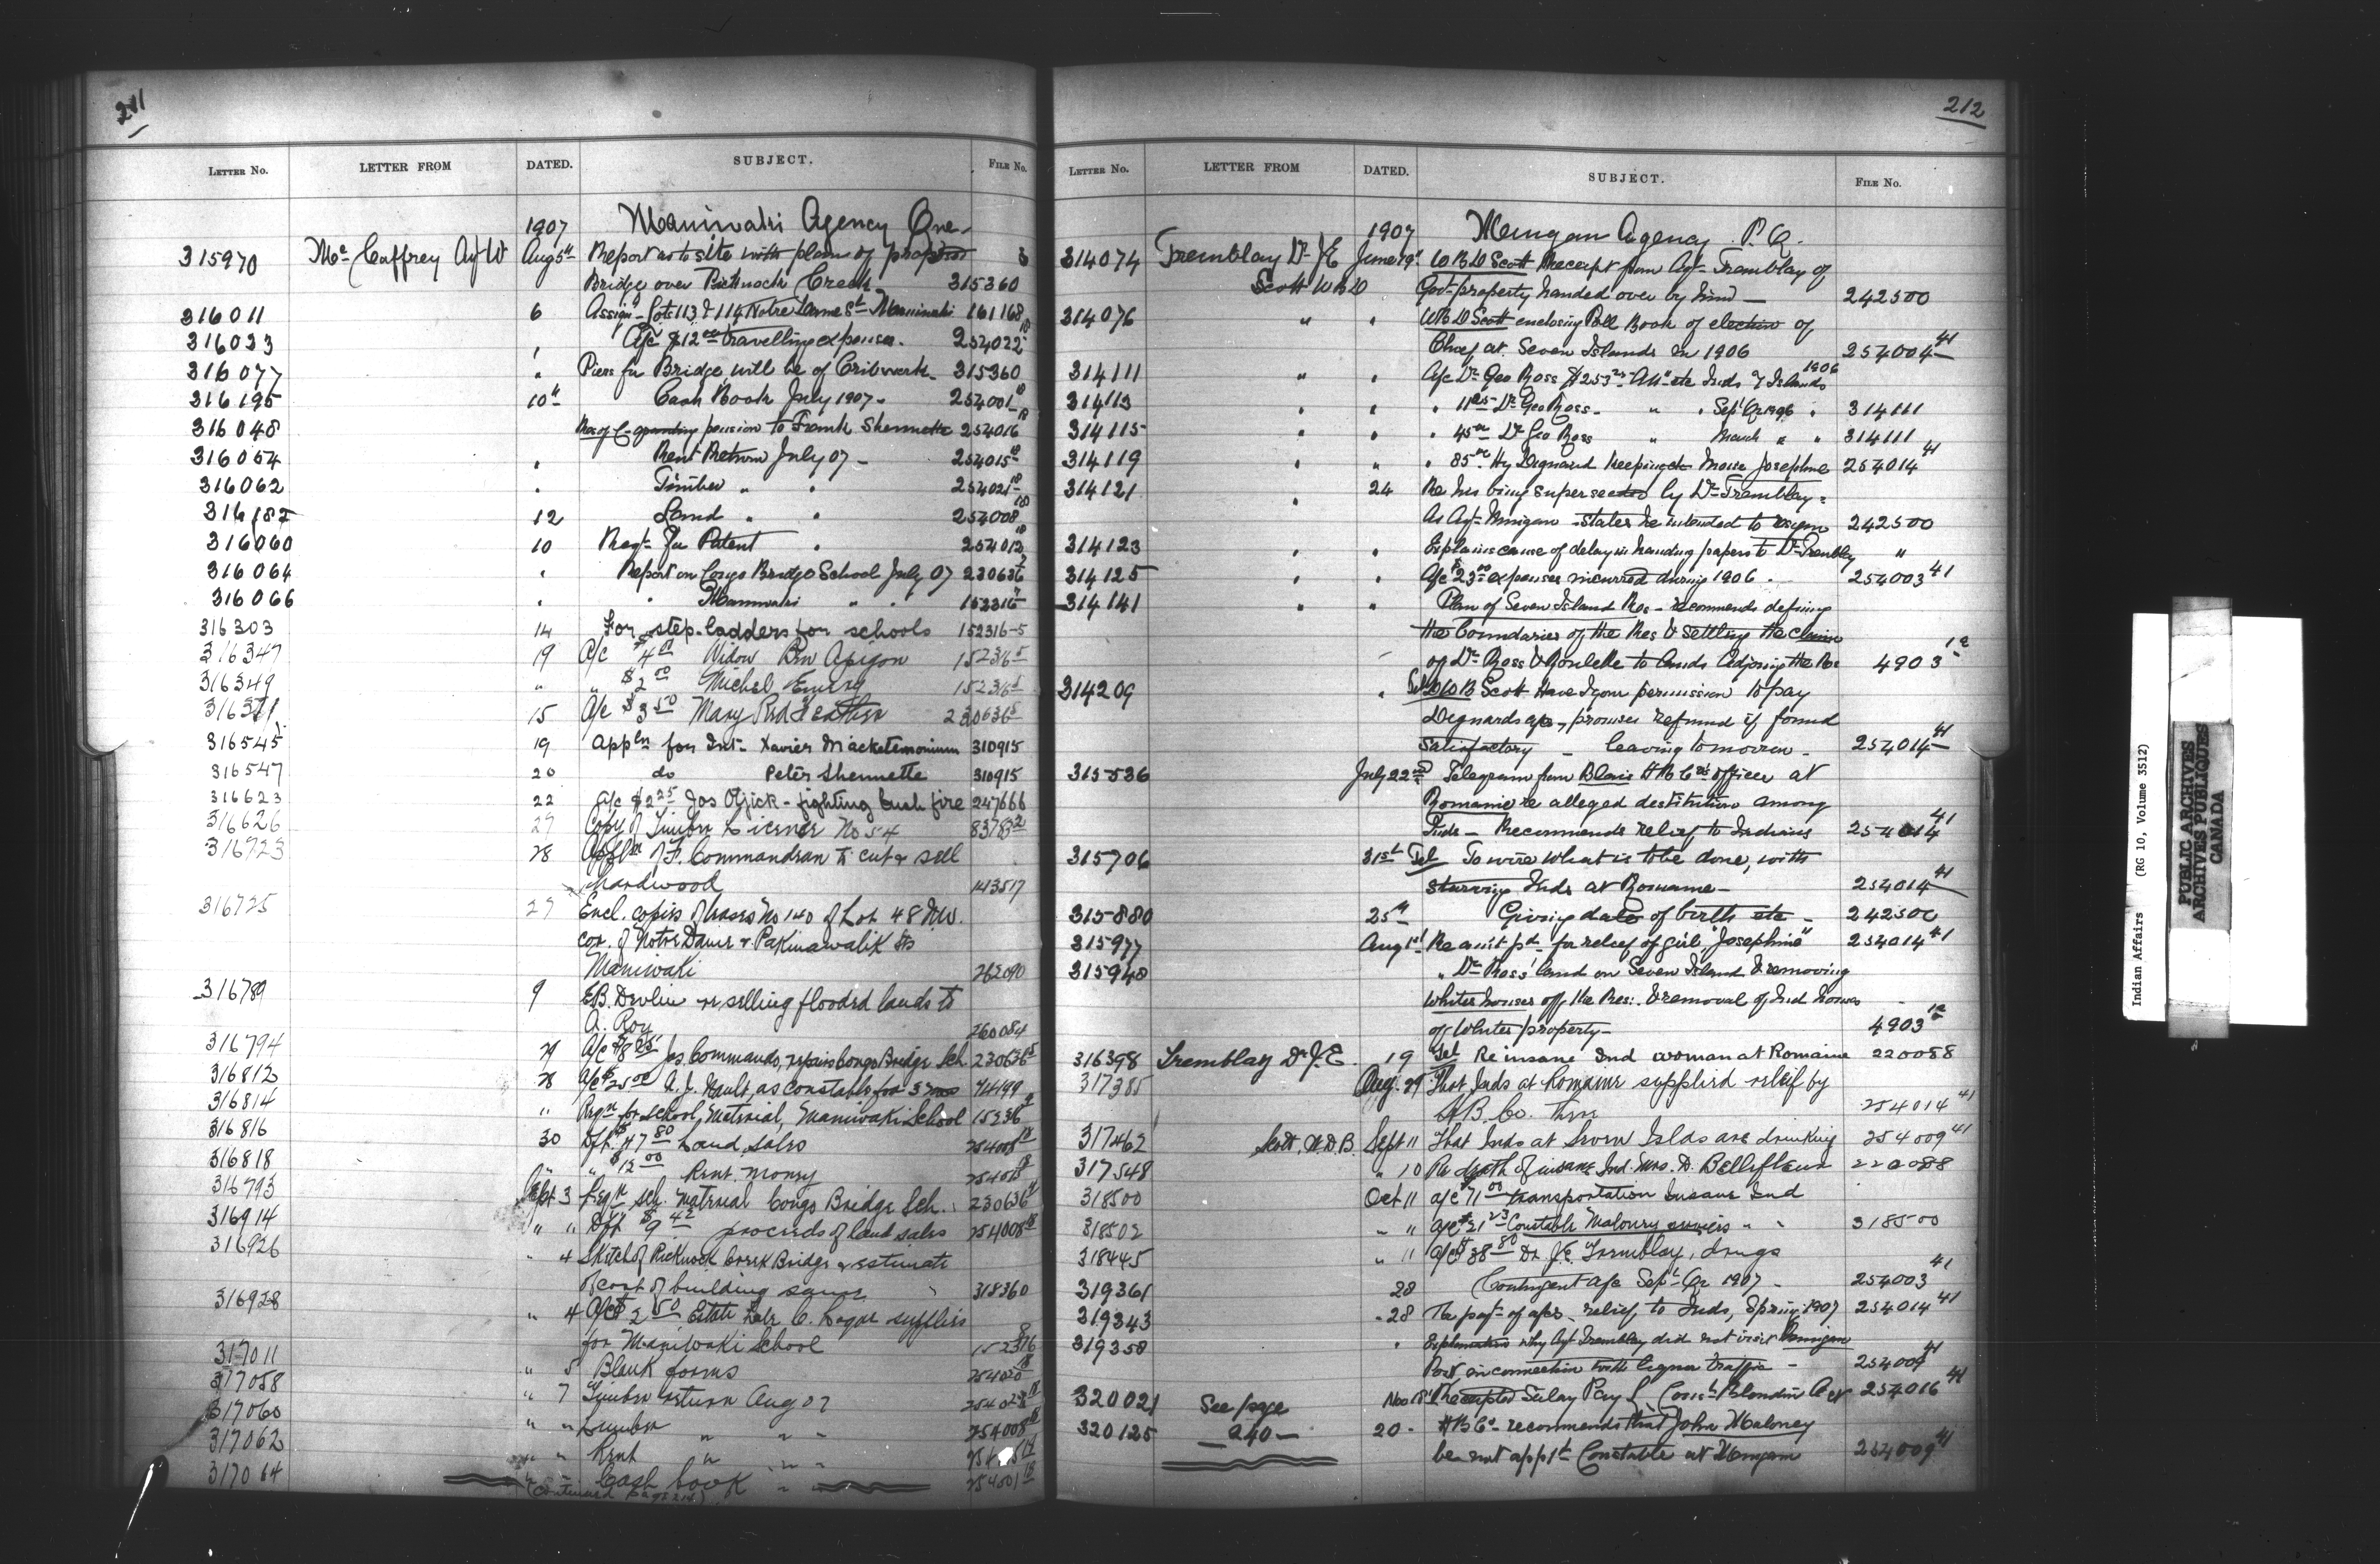 211
LETTER NO. LETTER FROM DATED. SUBJECT. FILE No.
1907 Maniwaki Agency Que.
315970 Mc Caffrey Agt W Aug 5th Report as to site with plans of proposed
Bridge over Picknock Creek 315360
316011 6 Assign. Lots 113 & 114 Notre Dame St. Maniwaki 161168
316033 A/c $12 00 travelling expenses. 254022 18
316077 " Piers for Bridge will be of Cribwork 315360
316195 10th Cash Book July 1907 - 254001 18
316048 pension to Frank Shennette 254016 18
316054 " Rent Return July 07 - 254015 18
316062 " Timber " " 254021 18
316187 12 Land " " 254008 18
316060 10 Reqt. for Patent " 254012 18
316064 " Report on Congo Bridge School July 07 230636
316066 " " Maniwaki " " 152316
316303 14 For step-ladders for schools 152316-5
316347 19 A/c $4 Widow Apigon 152316 5
316349 " " $2 00 Michel Emery 152316 5
15 A/c $3 50 Mary Red Feather 230636 5
316545 19 Appln for Int. Xavier Macketemonium 310915
316547 20 do Peter Shennette 310915
316623 22 A/c $2 25 Jos - fighting bush fire 247666
316626 27 Copy of Timber License No 54
316723 28 Appln of F. Commandran to cut & sell
hardwood 143517
316725 27 Encl. copies of leases No 140 of Lot 48 N.W.
cor. of Notre Dame & Pakinawatik Sts
Maniwaki 262090
316789 9 E.B. Devlin re selling flooded lands to
A. Roy 260084
316794 29 A/c $8 25 Jos Commando, repairs Congo Bridge Sch. 230636 5
316812 28 A/c $25 00 A. J. Nault, as constable for 3 mos 74199
316814 " Reqn for school material, Maniwaki School 152316
316816 30 Dft. $47 80 Land Sales 254008 18
316818 " " $12 00 Rent money 254015 18
316793 Sept 3 Reqn sch. material Congo Bridge Sch. 230636
316914 " " Dft $9 42 proceeds of land sales 254008 18
316926 " 4 Sketch of Picknock Creek Bridge & estimate
of cost of building same 318360
316928 " 4 A/c $2 50 Estate late C. Logue supplies
for Maniwaki School 152316
317011 " 5 Blank forms 254020 18
317058 " 7 Timber return Aug 07
317060 " " " " " 254008 18
317062 " " Rent " " "
317064 " " Cash book " 254001 18
(Continued page 214)
212
LETTER NO. LETTER FROM DATED. SUBJECT. FILE No.
1907 Mingan Agency P.Q.
314074 Tremblay Dr J E June 19th W B D Scott Receipt from Agt. Tremblay of
Scott W B D Govt property handed over by him - 242500
314076 " " W B D Scott enclosing Poll Book of election of
Chief at Seven Islands in 1906 254004 41
314111 " " A/c Dr Geo Ross $253 Attce etc Inds 7 Islands 1906
314113 " " " 11 25 Dr Geo Ross - " " Sept Qr 1906 " 314111
314115 " " " 45 00 Dr Geo Ross " March " " 314111
314119 " " " 85 00 Hy Dignard Keeping etc Moise Josephine 254014 41
314121 " 24 Re his being superseded by Dr Tremblay -
As Agt. Mingan - states he intended to resign 242500
314123 " " Explains cause of delay in handing papers to Dr Tremblay "
314125 " " A/c $23 00 expenses incurred during 1906 . 254003 41
314141 " " Plan of Seven Island Res - recommends defining
the boundaries of the Res & settling the claims
of Dr Ross & Roulette to lands adjoining the Res 4903 1a
314209 " Tel W D B Scott Have I your permission to pay
Dignards a/c, promises refund if found
satisfactory - leaving tomorrow - 254014 41
315536 July 22nd Telegram from Blais H B Co's officer at
Romaine re alleged destitution among
Inds - Recommends relief to Indians 254014 41
315706 31st Tel To wire what is to be done, with
starving Inds at Romaine - 254014 41
315880 25th Giving date of birth etc - 242500
315977 Aug 1st Re amt pd. for relief of girl, "Josephine" 254014 41
315948 " Dr Ross' land on Seven Island & removing
Whites houses off the Res: & removal of Ind houses
off Whites property - 4903 1a
316398 Tremblay Dr J. E. 19 Tel Re insane Ind woman at Romaine 220088
317385 Aug. 29 That Inds at Romaine supplied relief by
H B. Co. there 254014 41
317462 Scott, W.D.B. Sept 11 That Inds at Seven Islds are drinking 254009 41
317548 " 10 Re death of insane Ind. Mrs. D. Bellefleur 220088
318500 Oct 11 a/c $71 00 transportation Insane Ind
318502 " " a/c $21 23 Constable Maloney services " " 318500
318445 " 11 A/c $38 80 Dr. J.E. Tremblay, drugs
319361 28 Contingent A/c Sept. Qr 1907 - 254003 41
319343 " 28 Re payt. of a/cs relief to Inds, Spring 1907 254014 41
319358 " Explanation why Agt Tremblay did not visit Mingan
Post in connection with liquor traffic - 254009 41
320021 See page Nov 18 Receipted Salary Pay L Const. Blondin 254016 41
320125 240 - 20 - H B Co - recommends that John Maloney
be not appt. Constable at Mingan 254009 41
Indian Affairs (RG 10, Volume 3512)
PUBLIC ARCHIVES
ARCHIVES PUBLIQUES
CANADA